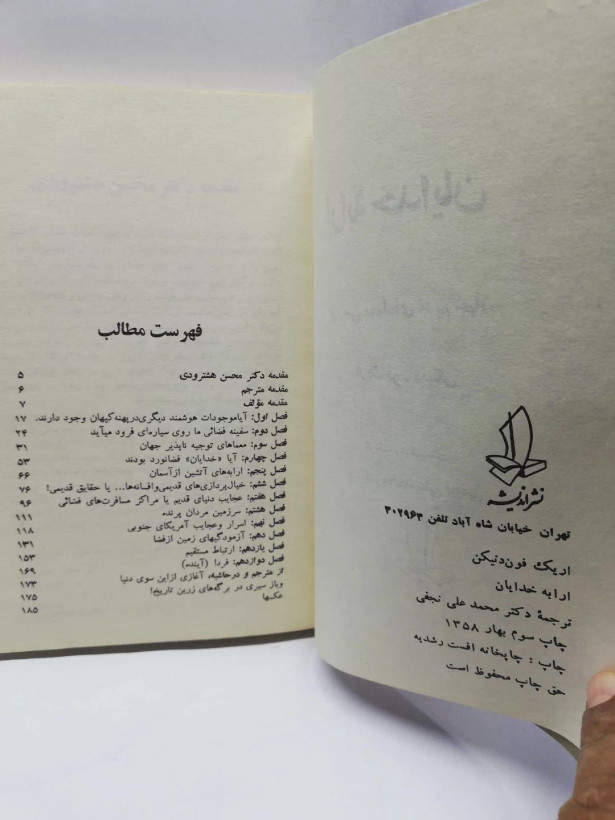 نشر اندیشه
تهران خیابان شاه آباد تلفن ۳۰۲۹۶۳
اریک فون‌دنیکن
ارابه خدایان
ترجمهٔ دکتر محمد علی نجفی
چاپ سوم بهار ۱۳۵۸
چاپ : چاپخانه افست رشدیه
حق چاپ محفوظ است
فهرست مطالب
مقدمه دکتر محسن هشترودی ۵
مقدمه مترجم ۶
مقدمه مؤلف ۷
فصل اول: آیا موجودات هوشمند دیگری در پهنه کیهان وجود دارند. ۱۷
فصل دوم: سفینه فضائی ما روی سیاره‌ای فرود میآید ۲۴
فصل سوم: معماهای توجیه ناپذیر جهان ۳۱
فصل چهارم: آیا «خدایان» فضانورد بودند ۵۳
فصل پنجم: ارابه‌های آتشین از آسمان ۶۶
فصل ششم: خیال‌پردازی‌های قدیمی و افسانه‌ها... یا حقایق قدیمی! ۷۶
فصل هفتم: عجایب دنیای قدیم یا مراکز مسافرت‌های فضائی ۹۶
فصل هشتم: سرزمین مردان پرنده ۱۱۱
فصل نهم: اسرار و عجایب آمریکای جنوبی ۱۱۸
فصل دهم: آزمودگیهای زمین از فضا ۱۳۱
فصل یازدهم: ارتباط مستقیم ۱۵۳
فصل دوازدهم: فردا (آینده) ۱۶۹
از مترجم و در حاشیه، آغازی از این سوی دنیا ۱۷۳
و باز سیری در برگه‌های زرین تاریخ! ۱۷۵
عکسها ۱۸۵